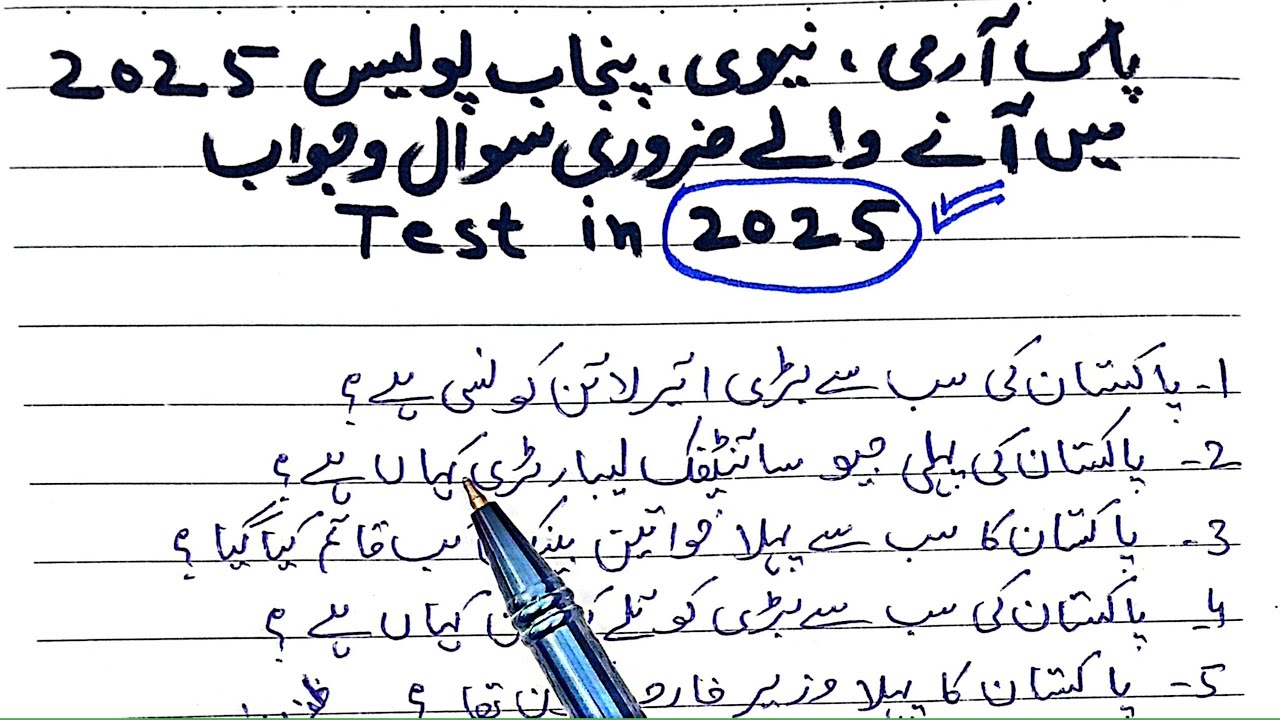 پاک آرمی ، نیوی، پنجاب پولیس 2025
میں آنے والے ضروری سوال وجواب
Test in 2025
1- پاکستان کی سب سے بڑی ائیر لائن کونسی ہے؟
2- پاکستان کی پہلی جیو سائنٹیفک لیبارٹری کہاں ہے؟
3- پاکستان کا سب سے پہلا خواتین بینک قائم کیا گیا ؟
4- پاکستان کی سب سے بڑی کوئلے کہاں ہے ؟
5- پاکستان کا پہلا وزیر تھا ؟